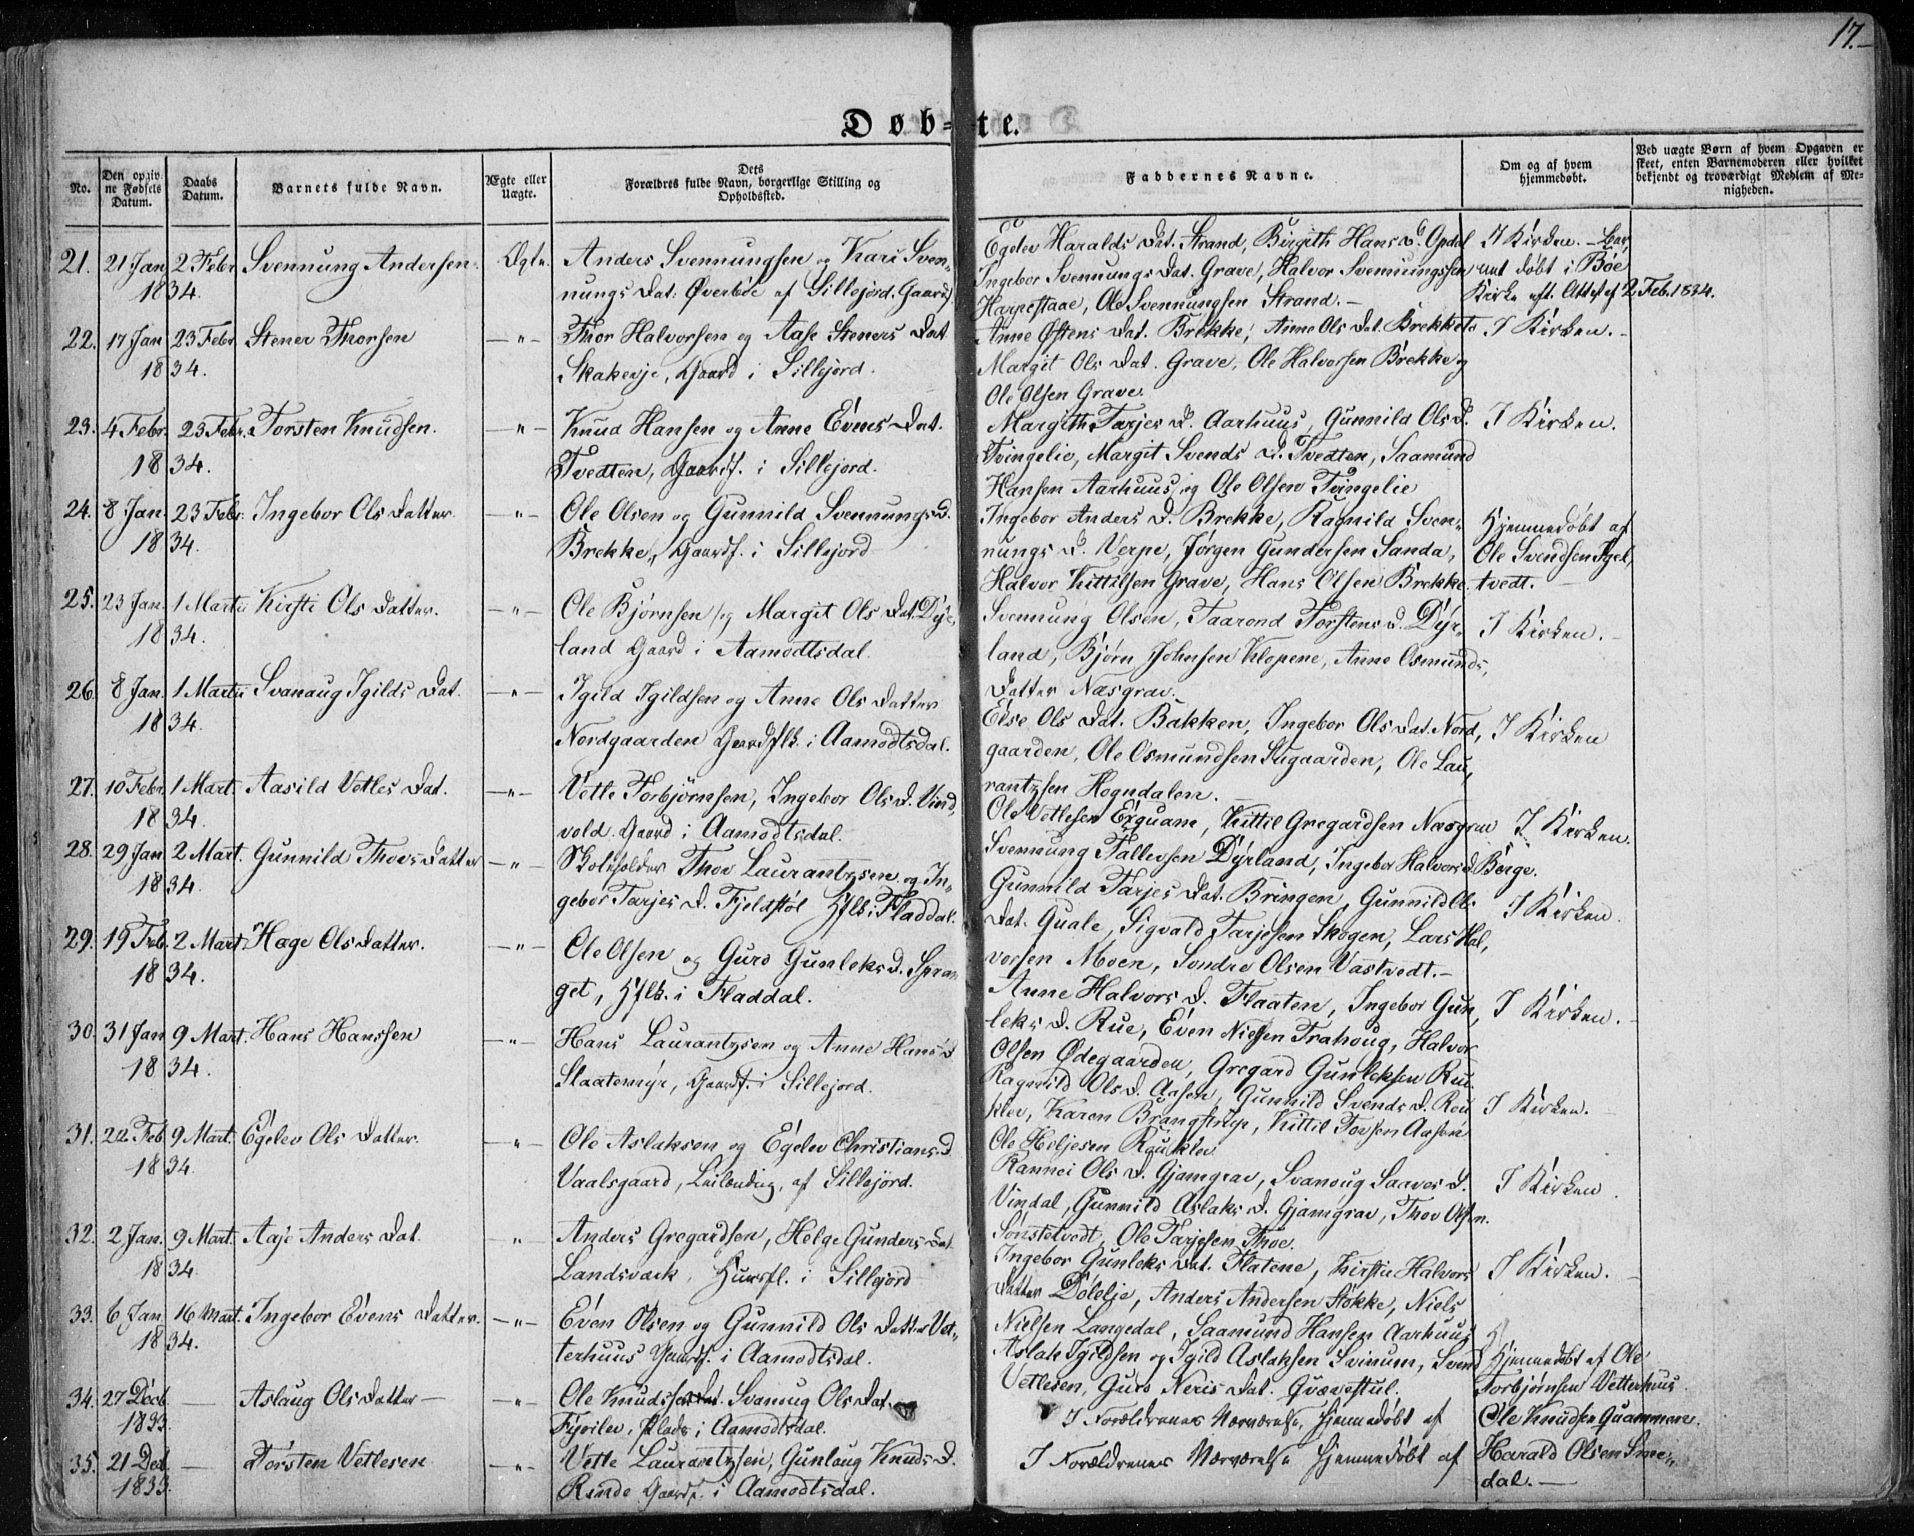 17.
Døb-te.
No.
Den opgiv-
ne Fødsels
Datum.
Daabs
Datum.
Barnets fulde Navn.
Ægte eller
Uægte.
Dets
Forældres fulde Navn, borgerlige Stilling og
Opholdssted.
Faddernes Navne.
Om og af hvem
hjemmedøbt.
Ved uægte Børn af hvem Opgaven er
skeet, enten Barnemoderen eller hvilket
bekjendt og troværdigt Medlem af Me-
nigheden.
21. 21 Jan 2 Febr Svennung Andersen. Ægte. Anders Svennungsen og Kari Sven-
1834. nungs Dat: Øverbøe af Sillejord. Gaardf.
Egelev Haralds Dat. Strand, Birgith Hans D. Opdal
Ingebor Svennungs Dat. Grave, Halvor Svennungssen
Harpestaae, Ole Svennungsen Strand.-
I Kirken. - Bar,
net døbt i Bøe
Kirke eft. Attest af 2 Feb. 1834.
22. 17 Jan 23 Febr. Stener Thorsen -"- Thor Halvorsen og Aase Steners Dat
1834. Skakevje, Gaard i Sillejord.
Anne Østens Dat. Brekke, Anne Ols Dat. Brekke
Margit Ols Dat. Grave, Ole Halvorsen Brekke og
Ole Olsen Grave.
I Kirken.-
23. 4 Febr. 23 Febr. Torsten Knudsen. -"- Knud Hansen og Anne Evens Dat.
1834. Tvedten, Gaardf. i Sillejord.
Margith Tarjes D. Aarhuus, Gunnild Ols D.
Tvingelie, Margit Svends D. Tvedten, Saamund
Hansen Aarhuus og Ole Olsen Tvingelie
I Kirken.
24. 8 Jan. 23 Febr. Ingebor Ols Datter. -"- Ole Olsen og Gunnild Svennungs D.
1834. Brekke, Gaardf. i Sillejord
Ingebor Anders D. Brekke, Ragnild Sven-
nungs D. Verpe, Jørgen Gundersen Sanda,
Halvor Kittilsen Grave, Hans Olsen Brekke.
Hjemmedøbt af
Ole Svendsen
tvedt.
25. 23 Jan. 1 Martii Kirsti Ols Datter. -"- Ole Bjørnsen og Margit Ols Dat. Dyr-
1834. land Gaard i Aamodtsdal.
Svennung Olsen, Taarond Torstens D. Dyr-
land, Bjørn Johnsen Klopene, Anne Osmunds,
Datter Næsgrav.
I Kirken.-
26. 8 Jan. 1 Martii Svanaug Igilds Dat. -"- Igild Igildsen og Anne Ols Datter
1834. Nordgaarden Gaardflk. i Aamodtsdal.
Else Ols Dat. Bakken, Ingebor Ols Dat. Nord,
gaarden, Ole Osmundsen, Ole Lau,
rantzsen Hogndalen.-
I Kirken
27. 10 Febr. 1 Mart. Aasild Vetles Dat. -"- Vetle Torbjørnsen, Ingebor Ols D. Vind,
1834. vold. Gaard i Aamodtsdal.
Ole Vetlesen, Kittil Gregardsen Næsgrav
Svennung Tallevsen Dyrland, Ingebor Halvors D. Berge.
I Kirken.
28. 29 Jan 2 Mart. Gunnild Thors Datter -"- Skoleholder Thor Laurantzsen og In-
1834. gebor Tarjes D. Fjeldstøl Hflk. i Fladdal.
Gunnild Tarjes Dat. Bringen, Gunnild Ols
Dat. Quale, Sigvald Tarjesen Skogen, Lars Hal,
vorsen Moen, Sondre Olsen Vastvedt.-
I Kirken.
29. 19 Feb. 2 Mart Hæge Ols Datter. -"- Ole Olsen og Guro Gunleks D. Spran
1834. get, Hflk. i Fladdal.
Anne Halvors D. Flaaten, Ingebor Gun,
leks D. Rue, Even Nielsen Trahoug, Halvor
Olsen Ødegaarden, Gregard Gunleksen Rue.
I Kirken.-
30. 31 Jan 9 Mart. Hans Hanssen -"- Hans Laurantzsen og Anne Hans D
1834. Slaatemyr, Gaardf. i Sillejord.
Ragnild Ols D. Aasen, Gunnild Svends D. Rou
klev, Karen, Kittil Torsen Aasen
Ole Heljesen Rouklev
I Kirken.
31. 22 Feb. 9 Mart. Egelev Ols Datter. -"- Ole Aslaksen og Egelev Christians D
1834. Vaalsgaard, Leilænding, af Sillejord.
Rannei Ols D. Gjamgrav, Svanoug Saaves D.
Vindal, Gunnild Aslaks D. Gjamgrav, Thov Olsen.
Sønstetvedt, Ole Tarjesen Thoe.
I Kirken.
32. 2 Jan. 9 Mart. Aase Anders Dat. -"- Anders Gregardsen, Helge Gunders Dat
1834. Landsværk, i Sillejord
Ingebor Gunleks Dat. Flatene, Kirstie Halvors
Datter Dølelie, Anders Andersen Støkke, Niels
Nielsen Langedal, Saamund Hansen Aarhuus
I Kirken.-
33. 6 Jan. 16 Mart. Ingebor Evens Datter. -"- Even Olsen og Gunnild Ols Datter Vet-
1834. terhuus Gaardf. i Aamodtsdal.
Aslak Igildsen og Igild Aslaksen Svinum, Svend
Vetlesen, Guro Neris Dat. Qvævestul.
Hjemmedøbt af Ole
Torbjørnsen Vetterhuus.
34. 27 Decb - Aslaug Ols Datter - -"- Ole Knudssen. Svanoug Ols Dat.
1833. Fyrilev, Plads i Aamodtsdal.
I Forældrenes Nærværelse Hjemmedøbt af
Ole Knudsen Quammen.
35. 21 Dec - Torsten Vetlesen -"- Vetle Laurantzsen, Gunlaug Knuds D.
1833. Rinde Gaardf. i Aamodtsdal.
I Forældrenes Nærværelse Hjemmedøbt af
Harald Olsen Sme-
dal.-